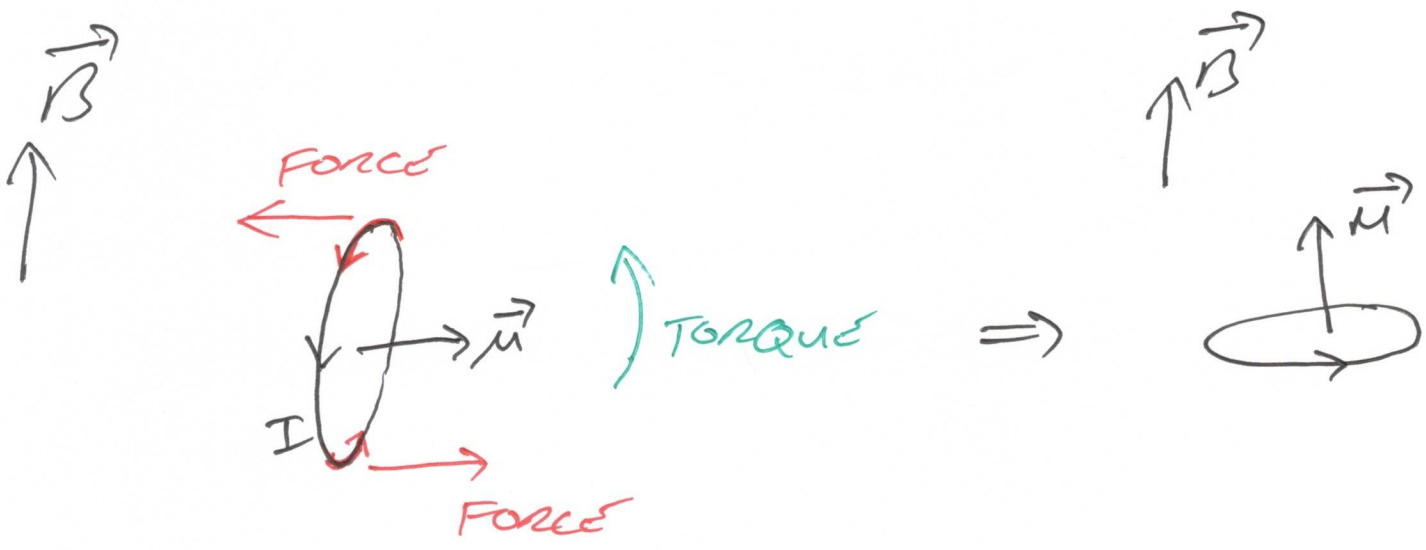 B
B
FORCE
μ
μ
TORQUE
⇒
I
FORCE